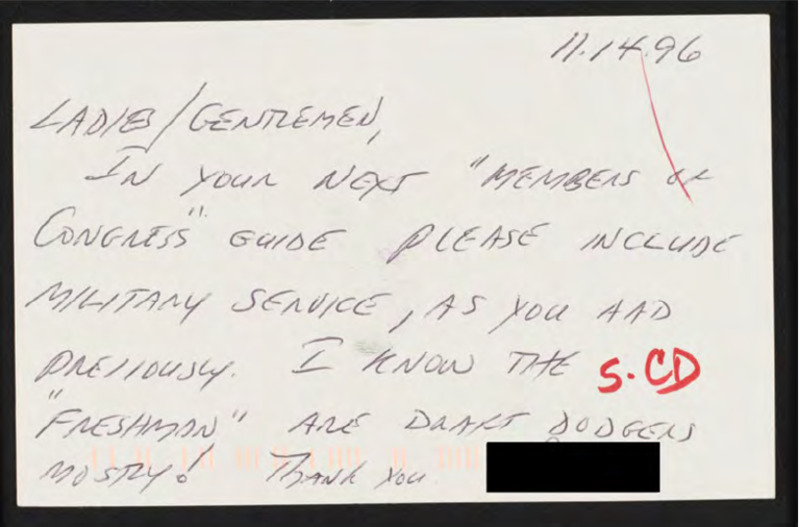 11.14.96
LADIES/GENTLEMEN,
IN YOUR NEXT "MEMBERS OF
CONGRESS" GUIDE PLEASE INCLUDE
MILITARY SERVICE, AS YOU HAD
PREVIOUSLY. I KNOW THE
S.CD
"FRESHMAN" ARE DRAFT DODGERS
MOSTLY! THANK YOU